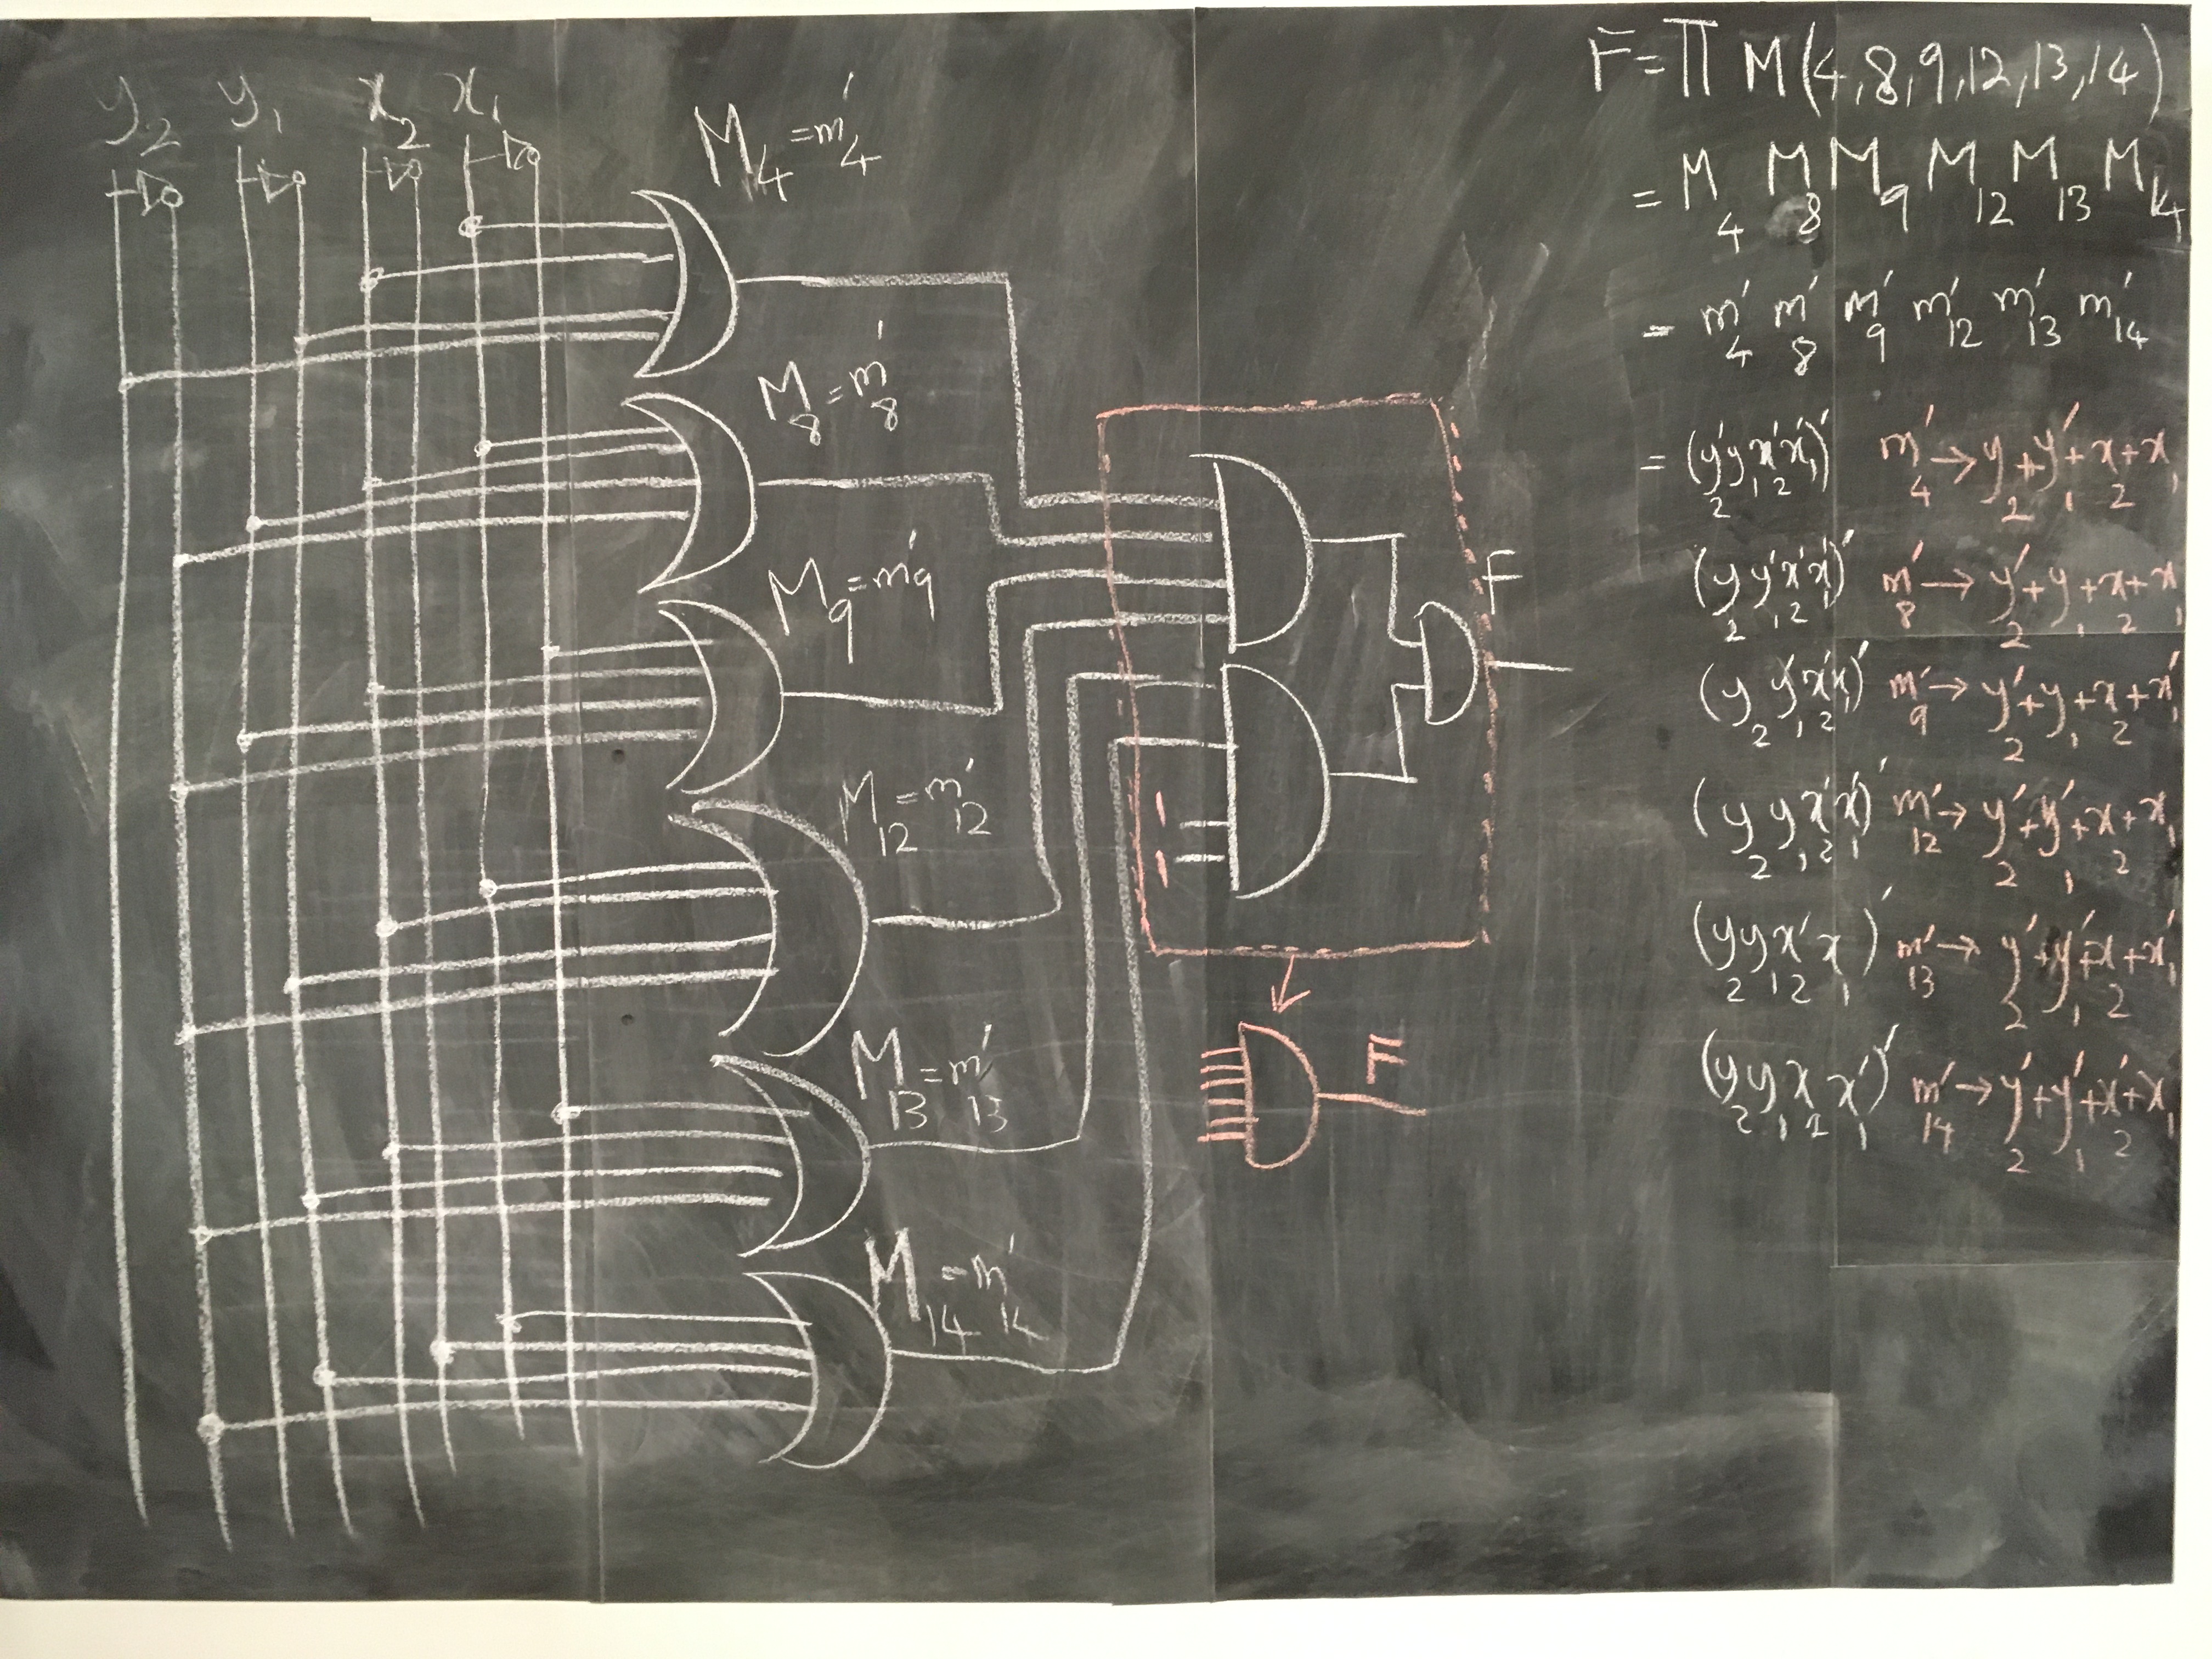 y₂ y₁ x₂ x₁
M₄ = m₄′
M₈ = m₈′
M₉ = m₉′
M₁₂ = m₁₂′
M₁₃ = m₁₃′
M₁₄ = m₁₄′
1
1
F
F
F = ∏ M(4,8,9,12,13,14)
= M₄ M₈ M₉ M₁₂ M₁₃ M₁₄
= m₄′ m₈′ m₉′ m₁₂′ m₁₃′ m₁₄′
= (y₂′y₁x₂′x₁′)′ m₄′ → y₂ + y₁′ + x₂ + x₁
(y₂y₁′x₂′x₁′)′ m₈′ → y₂′ + y₁ + x₂ + x₁
(y₂y₁′x₂′x₁)′ m₉′ → y₂′ + y₁ + x₂ + x₁′
(y₂y₁x₂′x₁′)′ m₁₂′ → y₂′ + y₁′ + x₂ + x₁
(y₂y₁x₂′x₁)′ m₁₃′ → y₂′ + y₁′ + x₂ + x₁′
(y₂y₁x₂x₁′)′ m₁₄′ → y₂′ + y₁′ + x₂′ + x₁